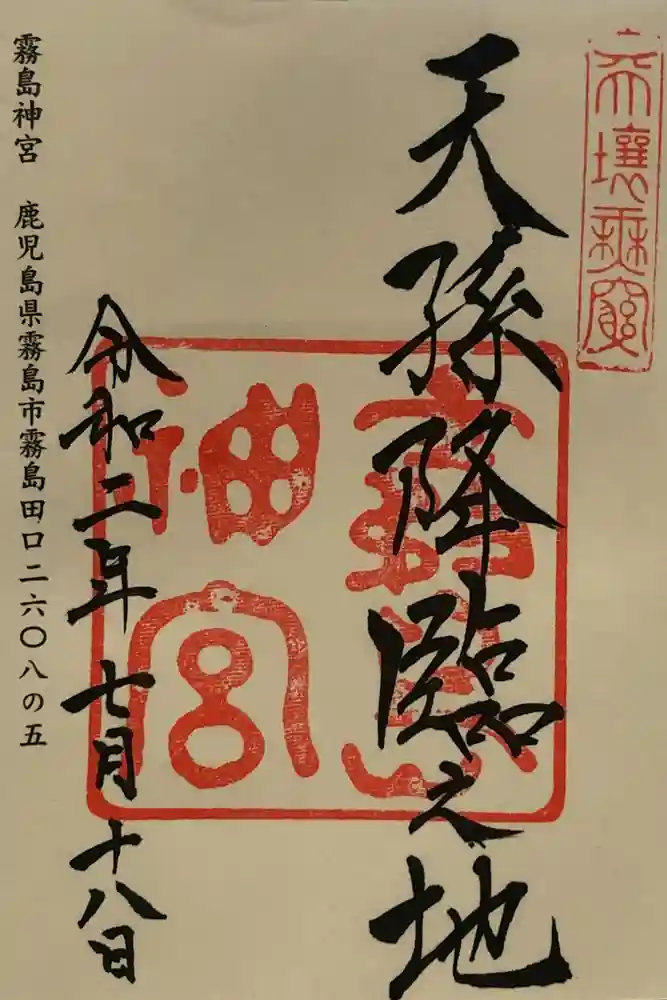 天壤無窮
天孫降臨之地
霧島
神宮
令和二年七月十八日
霧島神宮　鹿児島県霧島市霧島田口二六〇八の五